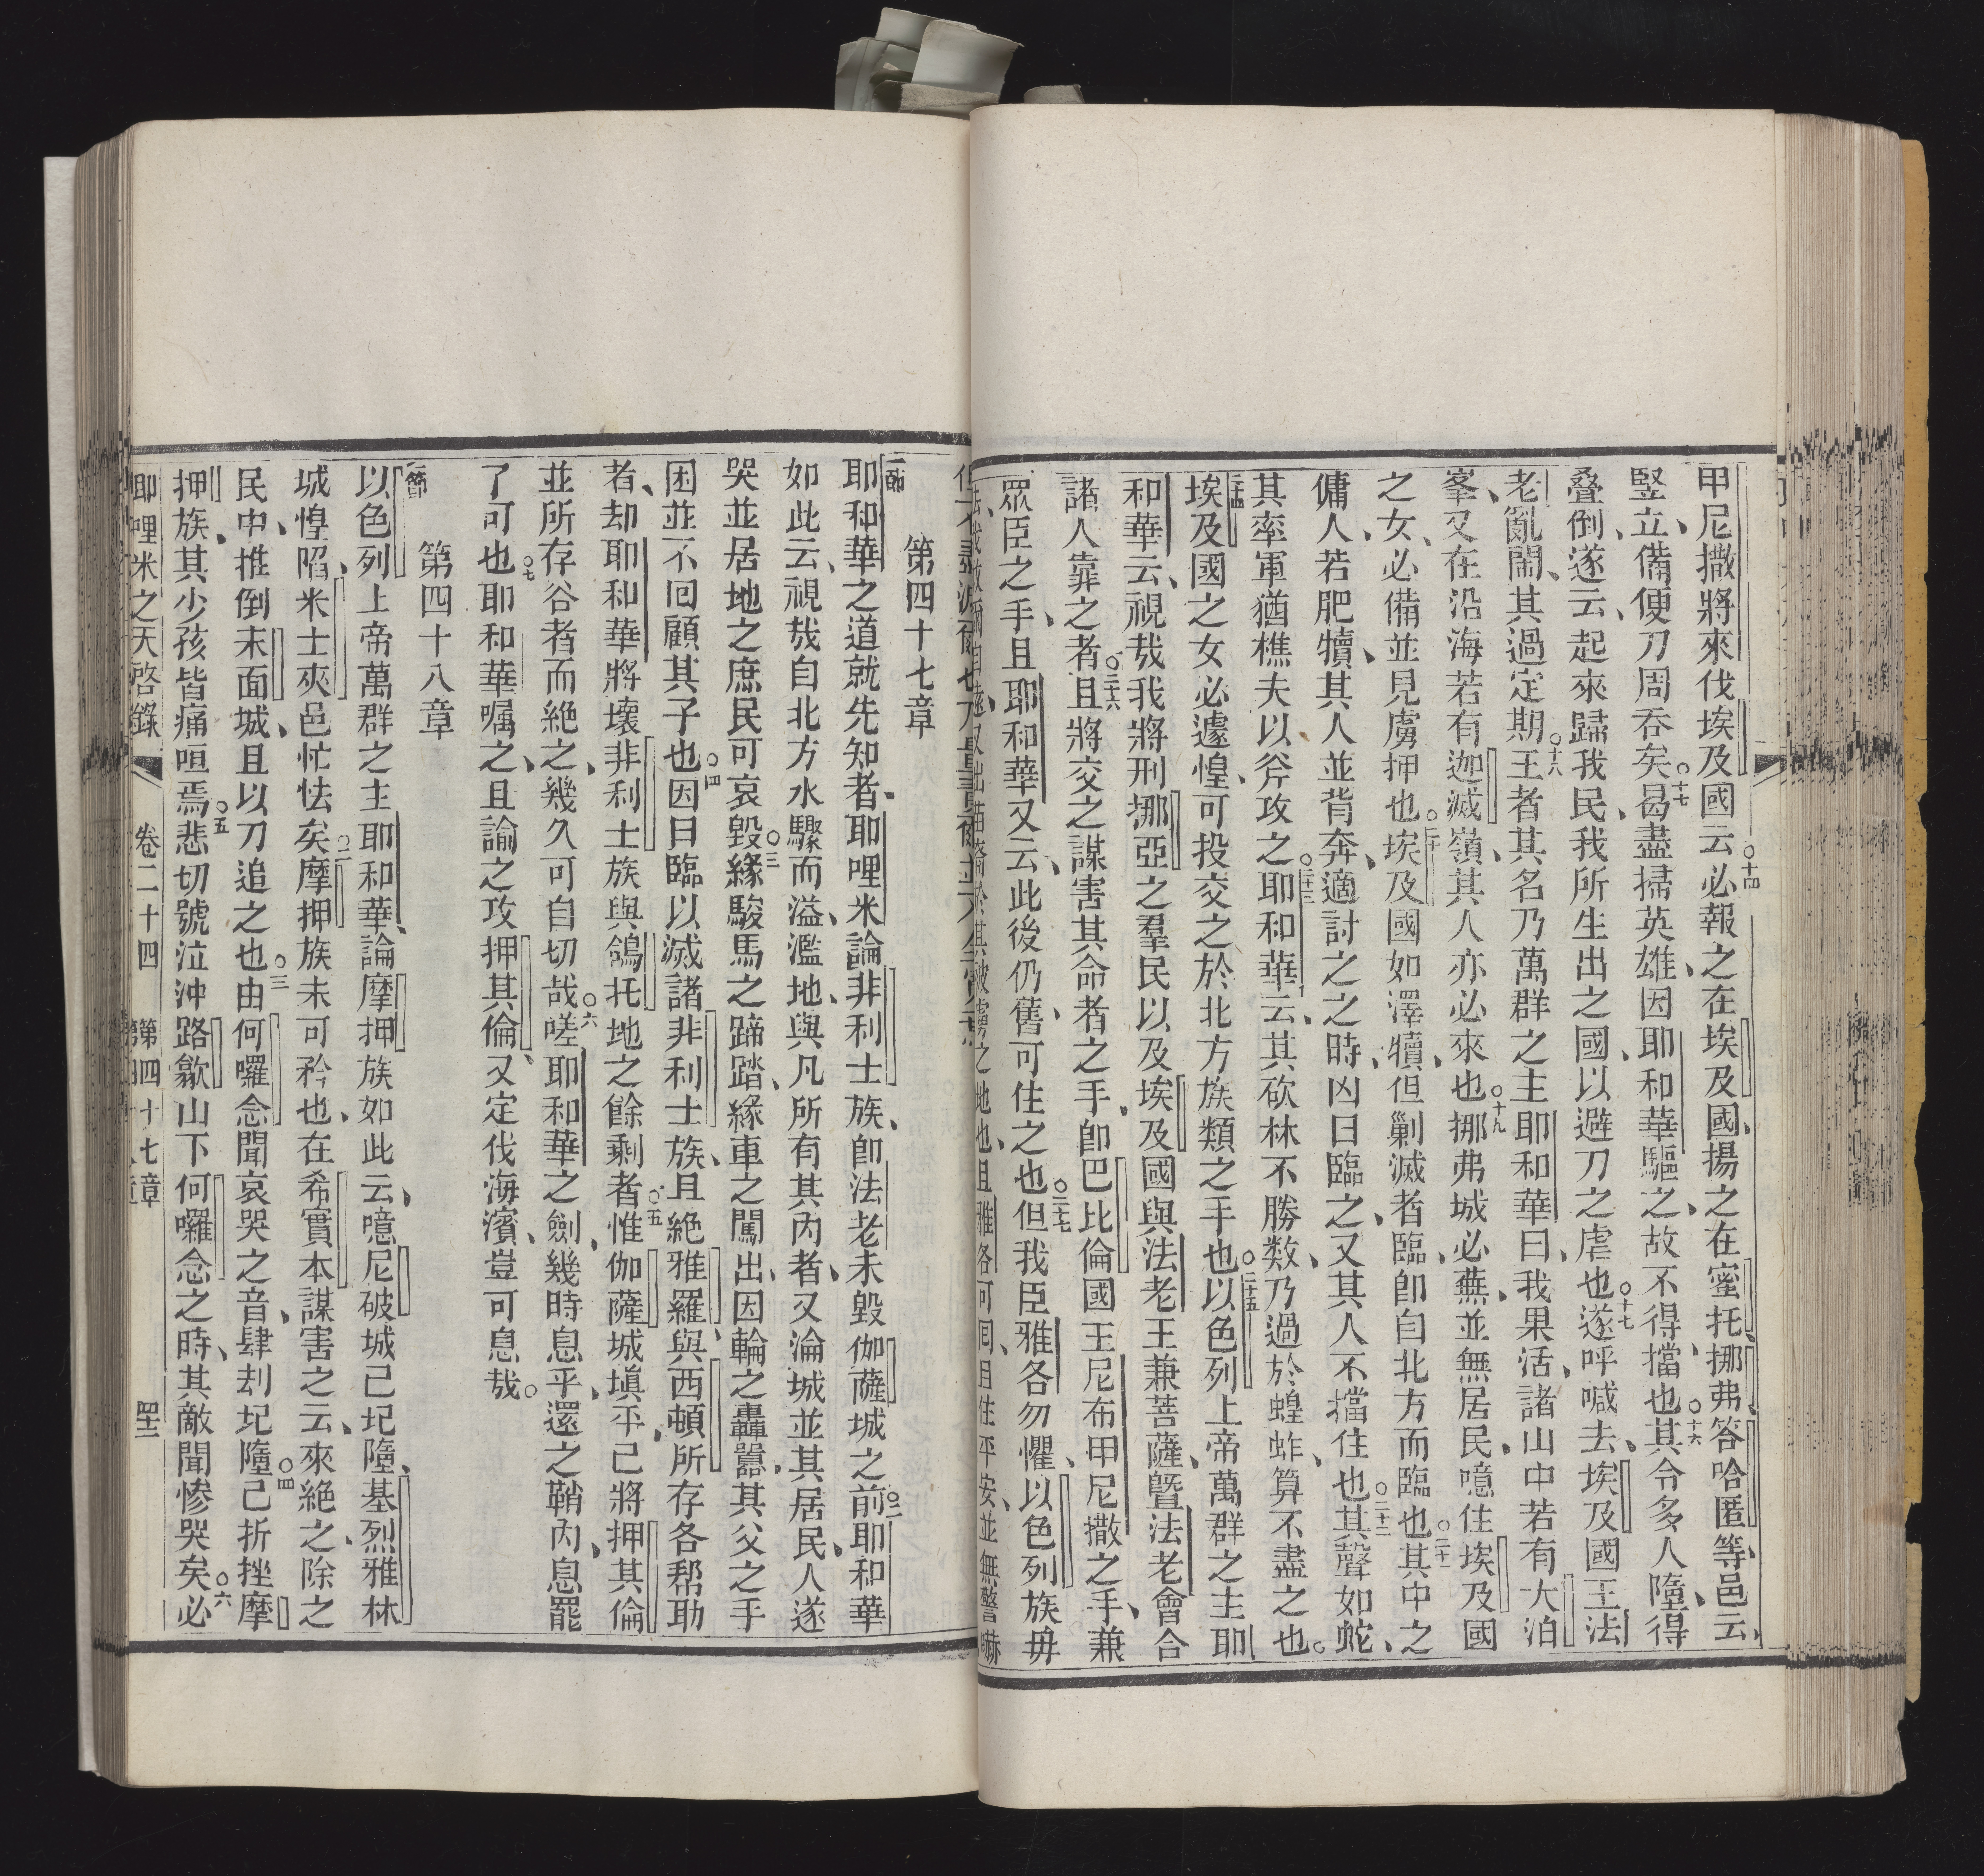 甲尼撒將來伐埃及國云○十四必報之在埃及國揚之在蜜托挪弗答哈匿等邑云
竪立備便刀周吞矣○十七曷盡掃英雄因耶和華驅之故不得擋也○十六其令多人墮得
疊倒遂云起來歸我民我所生出之國以避刀之虐也○十七遂呼喊去埃及國王法
老亂鬧其過定期○十八王者其名乃萬群之主耶和華曰我果活諸山中若有大泊
峯又在沿海若有迦滅嶺其人亦必來也○十九挪弗城必蕪並無居民噫住埃及國
之女必備並見虜押也○二十埃及國如澤犢但剿滅者臨卽自北方而臨也○二十一其中之
傭人若肥犢其人並背奔適討之之時凶日臨之又其人不擋住也○二十二其聲如蛇
其率軍猶樵夫以斧攻之○二十三耶和華云其砍林不勝数乃過於蝗蚱算不盡之也
二十四埃及國之女必遽惶可投交之於北方族類之手也○二十五以色列上帝萬群之主耶
和華云視哉我將刑挪亞之羣民以及埃及國與法老王兼菩薩曁法老會合
諸人靠之者○二十六且將交之謀害其命者之手卽巴比倫國王尼布甲尼撒之手兼
眾臣之手且耶和華又云此後仍舊可住之也○二十七但我臣雅各勿懼以色列族毋
之地也且雅各可回且住平安並無警嚇
第四十七章
一節耶和華之道就先知者耶哩米論非利士族卽法老未毀伽薩城之前○二耶和華
如此云視哉自北方水驟而溢濫地與凡所有其內者又淪城並其居民人遂
哭並居地之庶民可哀○三毀緣駿馬之蹄踏緣車之闖出因輪之轟囂其父之手
困並不回顧其子也○四因日臨以滅諸非利士族且絕雅羅與西頓所存各帮助
者却耶和華將壞非利士族與鴿托地之餘剩者○五惟伽薩城塡平已將押其倫
並所存谷者而絕之幾久可自切哉○六嗟耶和華之劍幾時息乎還之鞘內息罷
了可也○七耶和華囑之且諭之攻押其倫又定伐海濱豈可息哉
第四十八章
一節以色列上帝萬群之主耶和華論摩押族如此云噫尼破城已圮隳基烈雅林
城惶陷米士夾邑忙怯矣○二摩押族未可矜也在希實本謀害之云來絕之除之
民中推倒末面城且以刀追之也○三由何囉念聞哀哭之音肆刦圮隳○四已折挫摩
押族其少孩皆痛咺焉○五悲切號泣沖路歙山下何囉念之時其敵聞慘哭矣○六必
耶哩米之天啓錄 卷二十四 第四十七章